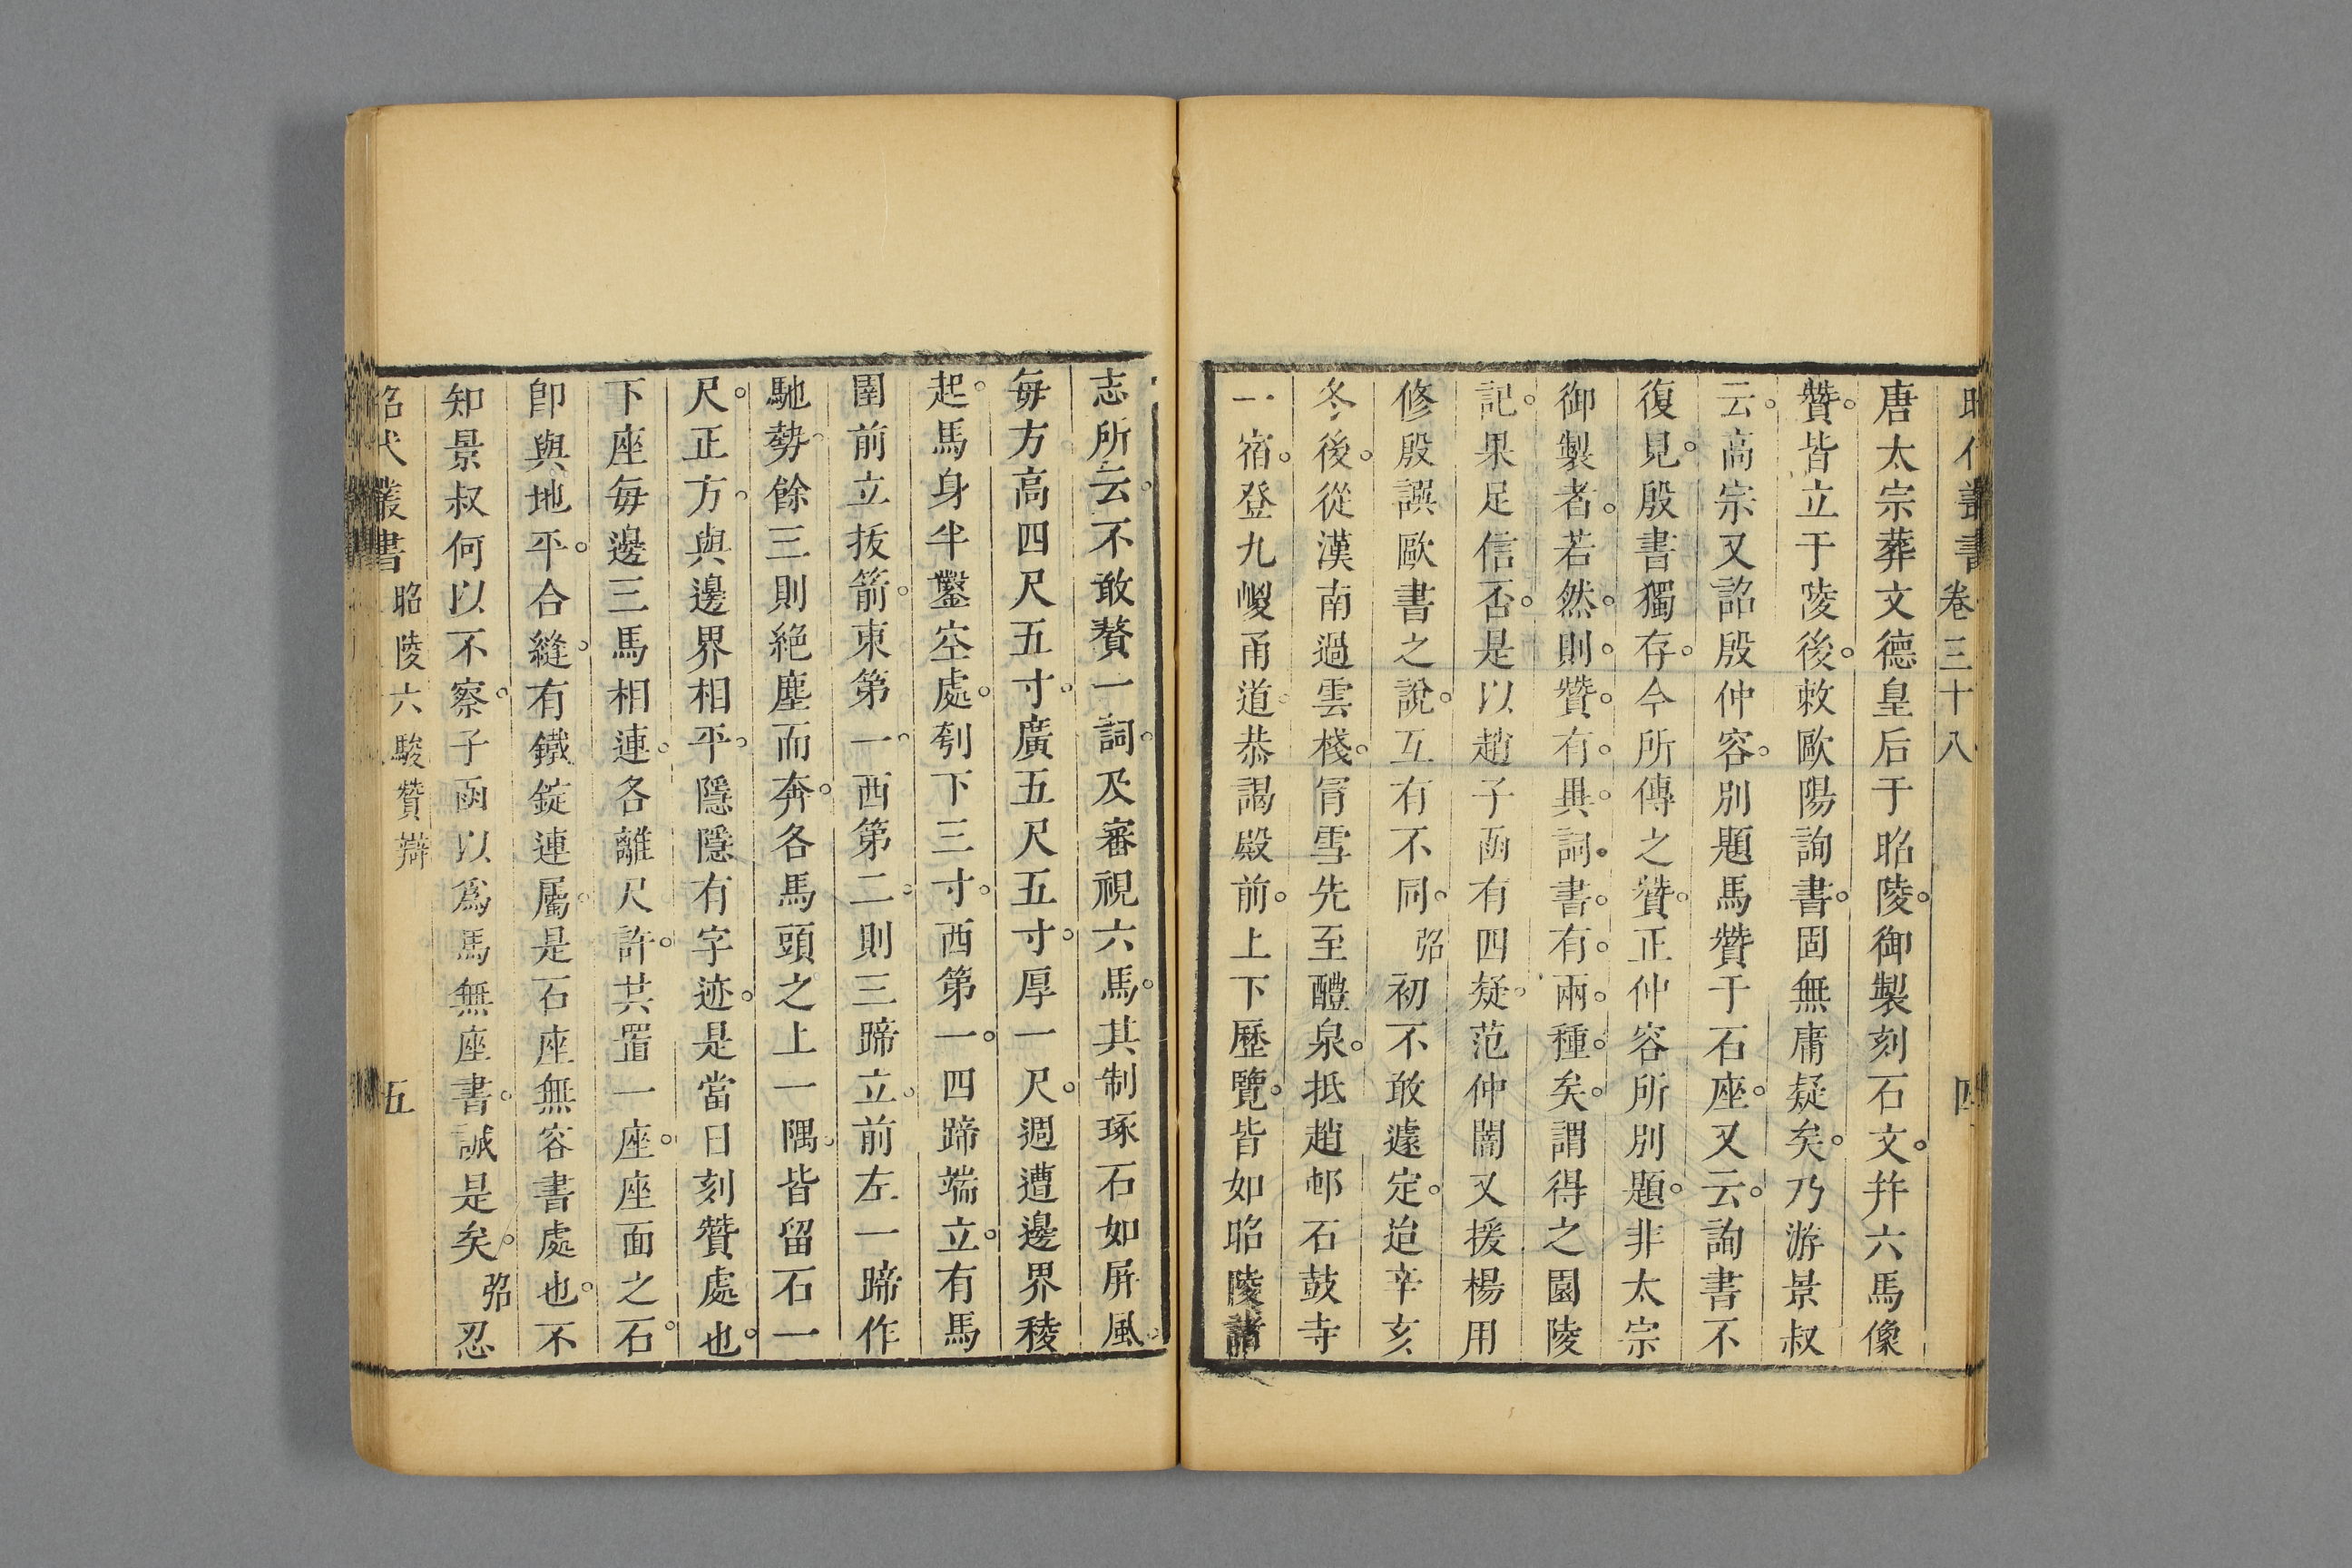 昭代叢書 卷三十八 四
唐太宗葬文德皇后于昭陵。御製刻石文。幷六馬像
贊。皆立于陵後。敕歐陽詢書。固無庸疑矣。乃游景叔
云。高宗又詔殷仲容。別題馬贊于石座。又云。詢書不
復見。殷書獨存。今所傳之贊。正仲容所別題。非太宗
御製者。若然。則。贊。有。異。詞。書。有。兩。種。矣。謂得之園陵
記。果足信否。是以趙子函有四疑。范仲闇又援楊用
修殷誤歐書之說。互有不同。弨初不敢遽定。迨辛亥
冬後。從漢南過雲棧。冐雪先至醴泉。抵趙邨石鼓寺
一宿。登九嵕甬道。恭謁殿前。上下歷覽。皆如昭陵諸
志所云。不敢贅一詞。及審視六馬。其制琢石如屏風。
每方高四尺五寸。廣五尺五寸。厚一尺。週遭邊界稜
起。馬身半鑿空處。刳下三寸。西第一。四蹄端立。有馬
圉前立拔箭。東第一。西第二。則三蹄立。前左一蹄作
馳勢。餘三則絶塵而奔。各馬頭之上一隅。皆留石一
尺。正方。與邊界相平。隱隱有字迹。是當日刻贊處也。
下座每邊三馬相連。各離尺許。其置一座。座面之石。
卽與地平。合縫。有鐵錠連屬。是石座無容書處也。不
知景叔何以不察。子函以爲馬無座書。誠是矣。弨忍
昭代叢書 昭陵六駿贊辯 五